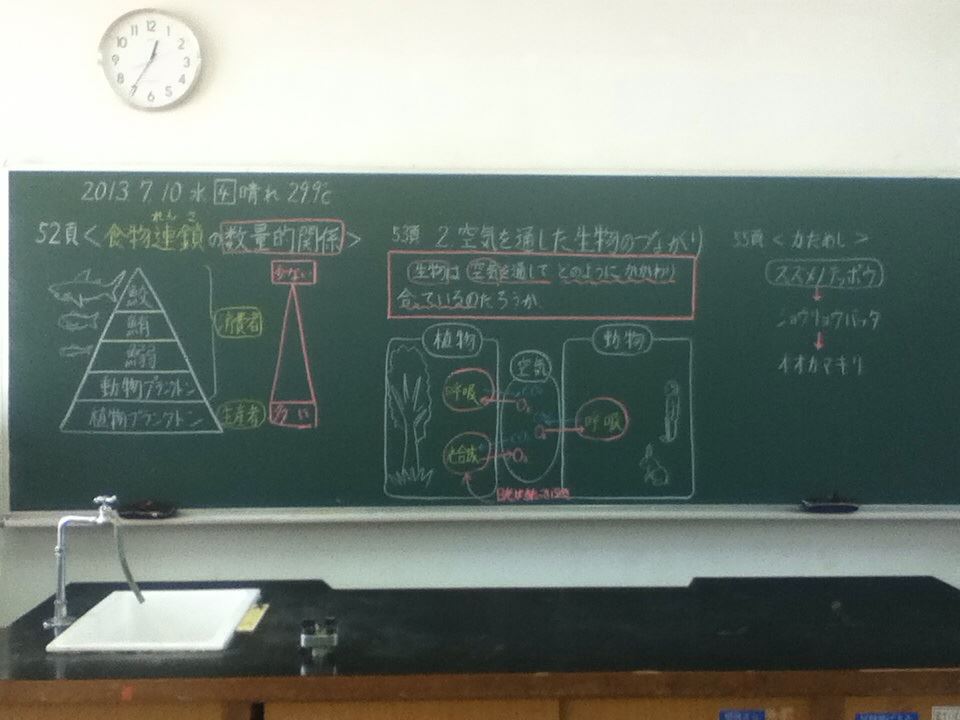 12
1
2
3
4
5
6
7
8
9
10
11
2013. 7. 10 水 4 晴れ 29.9℃
52頁<食物連鎖の数量的関係>
れんさ
鮫
鯖
鰯
動物プランクトン
植物プランクトン
消費者
生産者
少ない
多い
53頁 2.空気を通した生物のつながり
生物は空気を通してどのようにかかわり
合っているのだろうか。
植物
空気
動物
呼吸
O₂
呼吸
光合成
O₂
55頁<力だめし>
スズメノテッポウ
ショウリョウバッタ
オオカマキリ